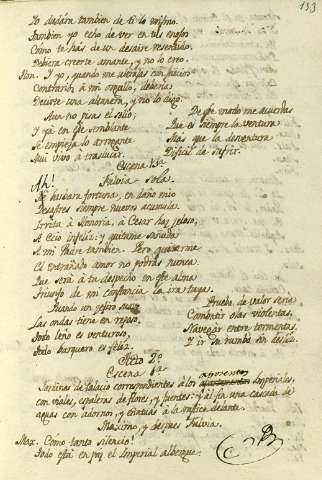 133
Yo dudára tambien de ti lo mismo.
Tambien yo echo de ver en tus enojos
Como te hás de un desaire resentido.
Debiera creerte amante, y no lo creo.
Hon. Y yo, quando me ultrajas con
Contraria à mi orgullo, deberia
Decirte una altanera, y no lo digo.
Aun no pisas el solio;
Y yá en ese semblante
Se empieza lo arrogante
Mui vivo à traslucir.
De ese modo me acuerdas
Que es siempre la ventura
Mas que la desventura
Dificil de sufrir.
Escena 13ª
Fulvia sola.
Ah! Mi hadára fortuna, en daño mio
Desastres siempre nuevos acumula.
Irrita à Honoria, à Cesar haz zeloso,
A Ecio infeliz: y quitame sañuda
A mi Padre tambien. Pero quitarme
El entrañado amor no podrás nunca.
Que será à tu despecho en este alma
Triunfo de mi constancia la ira tuya.
Quando un zefiro suave
Las ondas tiene en reposo,
Todo leño es venturoso,
Todo barquero es feliz.
Prueba de valor seria
Combatir olas violentas,
Navegar entre tormentas,
Y ir su rumbo sin desliz.
Acto 2º
Escena 1ª
Jardines de Palacio correspondientes à los aposentos Imperiales,
con viales, espaleras de flores, y fuentes: y al fin una cascada de
aguas con adornos, y estatuas à la rustica delante.
Maximo, y despues Fulvia.
Max. Como tanto silencio!
Todo está en paz el Imperial albergue.